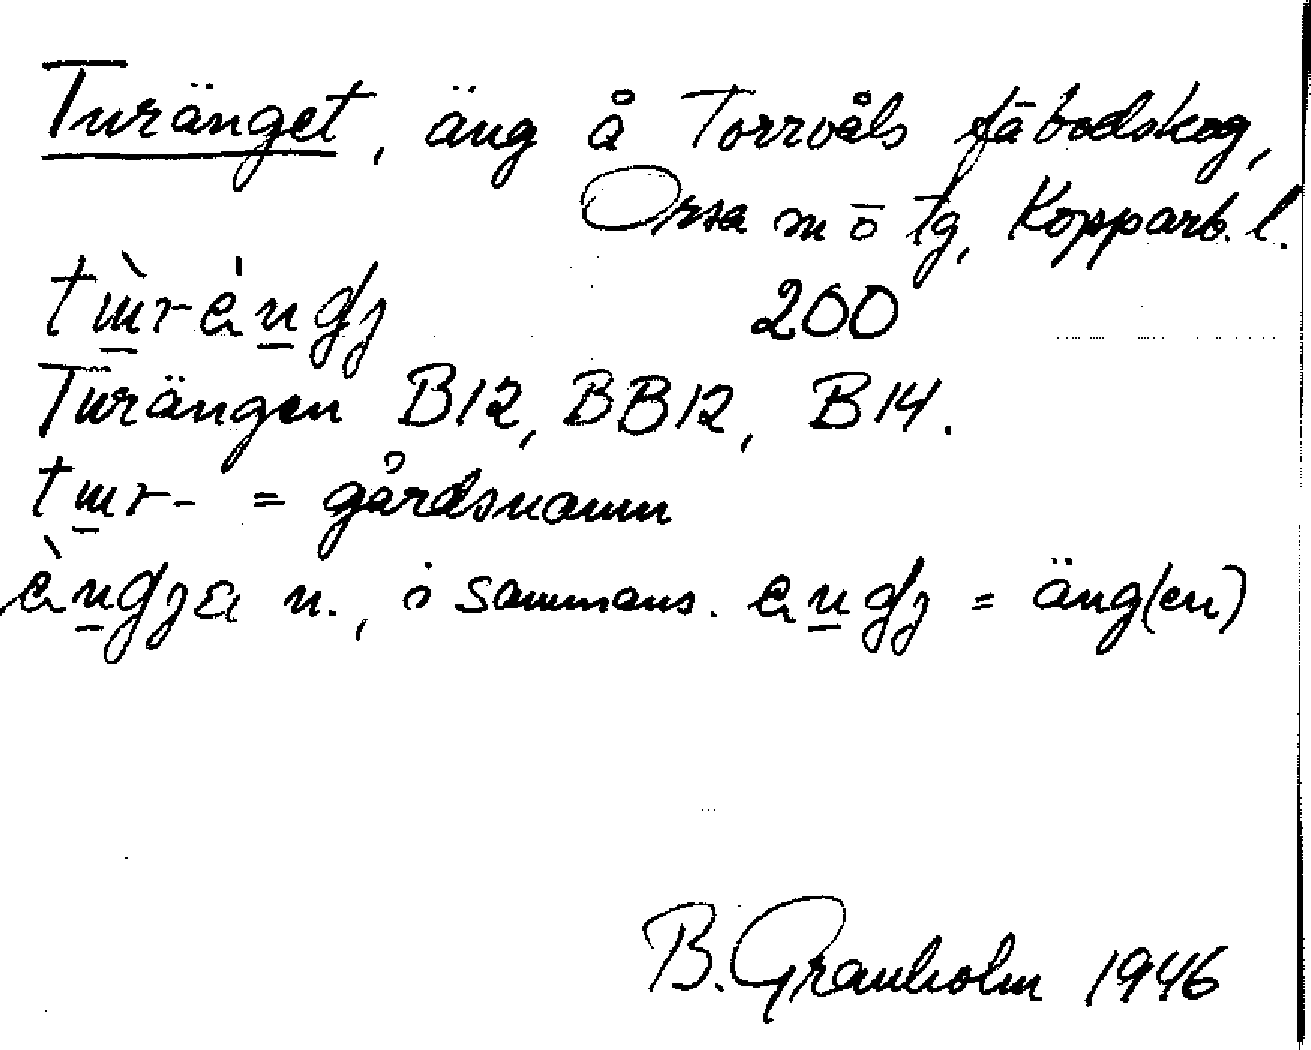 Turänget, äng å Torrvåls fäbodskog,
Orsa sn o tg, Kopparb. l.
200
Turängen B12, BB12, B14.
= gårdsnamn
n., i sammans. = äng(en)
B. Granholm 1946